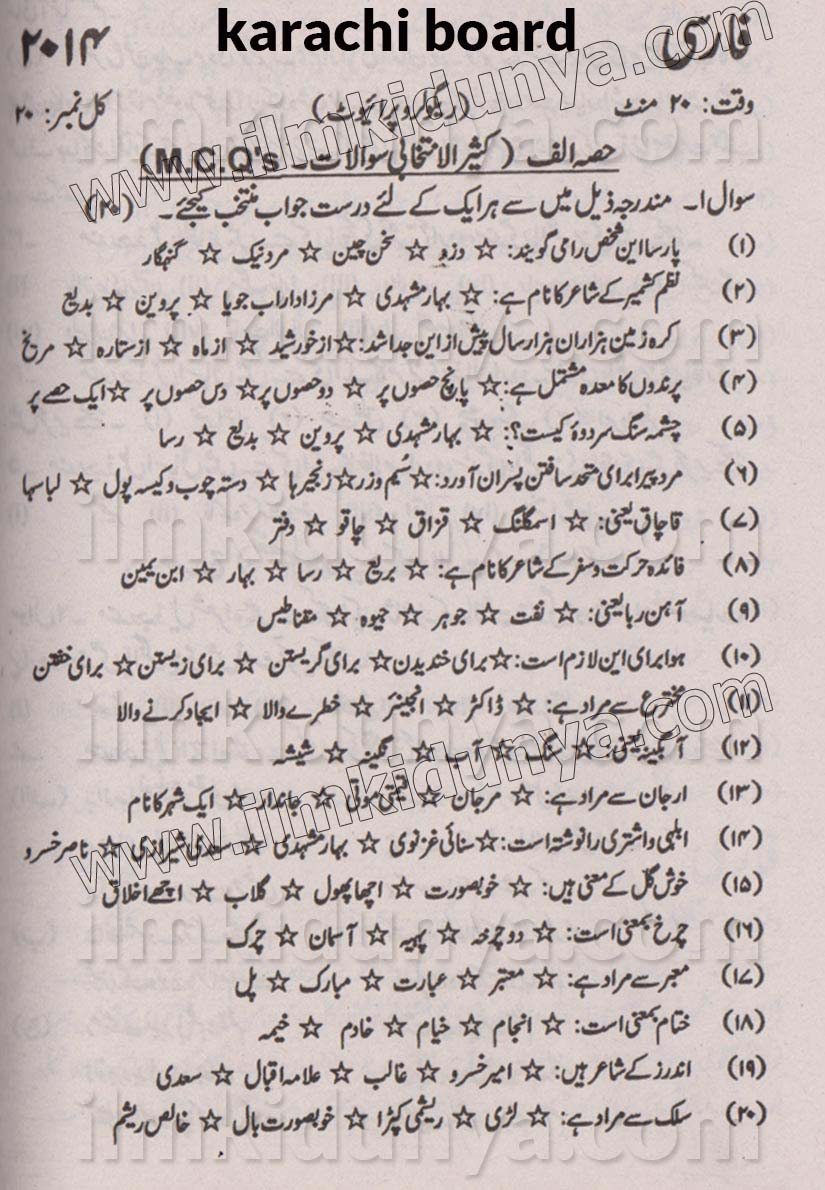 karachi board
فارسی ۲۰۱۴
وقت: ۲۰ منٹ (ریگولر و پرائیوٹ) کل نمبر: ۲۰
حصہ الف (کثیر الامتحانی سوالات۔ M.C.Q's)
سوال ۱۔ مندرجہ ذیل میں سے ہر ایک کے لئے درست جواب منتخب کیجئے۔ (۲۰)
(۱) پارسا این شخص رامی گویند: ☆ دزد ☆ سخن چین ☆ مردنیک ☆ گنہگار
(۲) نظم کشمیر کے شاعر کا نام ہے: ☆ بہار مشہدی ☆ مرزا داراب جویا ☆ پروین ☆ بدیع
(۳) کرہ زمین ہزاران ہزار سال پیش از این جدا شد: ☆ از خورشید ☆ از ماہ ☆ از ستارہ ☆ مریخ
(۴) پرندوں کا معدہ مشتمل ہے: ☆ پانچ حصوں پر ☆ دو حصوں پر ☆ دس حصوں پر ☆ ایک حصے پر
(۵) چشمہ سنگ سرودۂ کیست؟: ☆ بہار مشہدی ☆ پروین ☆ بدیع ☆ رسا
(۶) مرد پیر برای متحد ساختن پسران آورد: ☆ سُیم وزر ☆ زنجیرہا ☆ دستہ چوب و کیسہ پول ☆ لباسہا
(۷) قاچاق یعنی: ☆ اسمگلنگ ☆ قزاق ☆ چاقو ☆ دفتر
(۸) فائدہ حرکت و سفر کے شاعر کا نام ہے: ☆ بریع ☆ رسا ☆ بہار ☆ ابن یمین
(۹) آہن ربا یعنی: ☆ نفت ☆ جوہر ☆ جیوہ ☆ مقناطیس
(۱۰) ہوا برای این لازم است: ☆ برای خندیدن ☆ برای گریستن ☆ برای زیستن ☆ برای خفتن
(۱۱) مخترع سے مراد ہے: ☆ ڈاکٹر ☆ انجینئر ☆ خطرے والا ☆ ایجاد کرنے والا
(۱۲) آبگینہ یعنی: ☆ سنگ ☆ آب ☆ نگینہ ☆ شیشہ
(۱۳) ارجان سے مراد ہے: ☆ مرجان ☆ قیمتی موتی ☆ جاندار ☆ ایک شہر کا نام
(۱۴) ابلہی واشتری رانوشتہ است: ☆ سنائی غزنوی ☆ بہار مشہدی ☆ سعدی شیرازی ☆ ناصر خسرو
(۱۵) خوش گل کے معنی ہیں: ☆ خوبصورت ☆ اچھا پھول ☆ گلاب ☆ اچھے اخلاق
(۱۶) چرخ بمعنی است: ☆ دوچرخہ ☆ پہیہ ☆ آسمان ☆ چرک
(۱۷) معبر سے مراد ہے: ☆ معتبر ☆ عبارت ☆ مبارک ☆ پل
(۱۸) ختام بمعنی است: ☆ انجام ☆ خیام ☆ خادم ☆ خیمہ
(۱۹) اندرز کے شاعر ہیں: ☆ امیر خسرو ☆ غالب ☆ علامہ اقبال ☆ سعدی
(۲۰) سلک سے مراد ہے: ☆ لڑی ☆ ریشمی کپڑا ☆ خوبصورت بال ☆ خالص ریشم
www.ilmkidunya.com
www.ilmkidunya.com
ilmkidunya.com
ilmkidunya.com
ilmkidunya.com
ilmkidunya.com
ilmkidunya.com
ilmkidunya.com